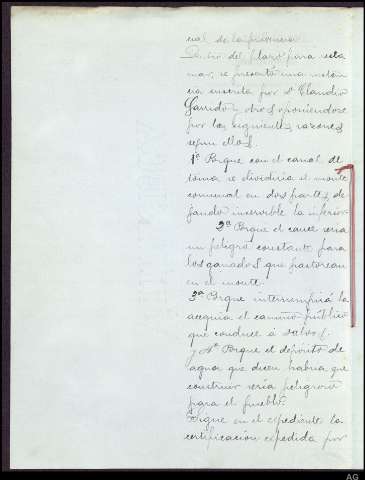 cial de la provincia.
Dentro del plazo para recla
mar, se presentó una instan
cia suscrita por Dn Claudio
Garrido y otros oponiendose
por las siguientes razones
segun ellos.
1ª Porque con el canal de
toma se dividiria el monte
comunal en dos partes de
jando inservible la inferior
2ª Porque el cauce seria
un peligro constante para
los ganados que pastorean
en el monte.
3ª Porque interrumpirá la
acequia el camino público
que conduce á
y 4ª Porque el depósito de
agua que dicen habria que
construir seria peligroso
para el pueblo.
Sigue en el expediente la
certificacion expedida por
AG